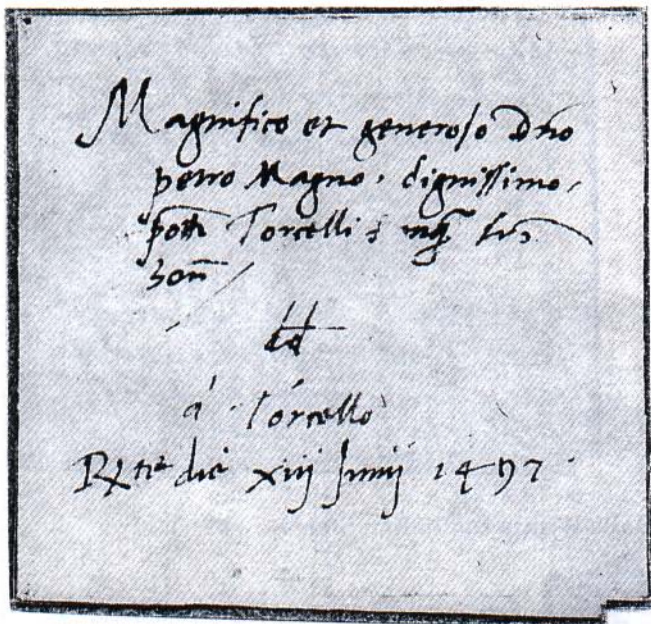 Magnifico et generoso Dno
petro Magno, dignissimo,
potti Torcelli
hon
á Torcello
Rxte die xiij Junij 1497